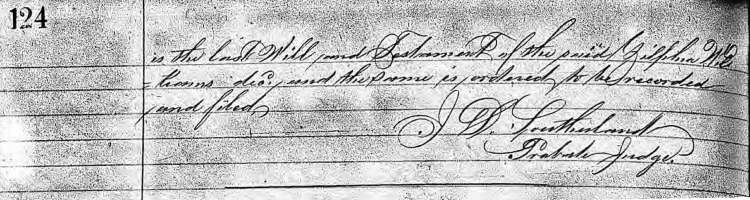 124
is the last Will and Testament of the said Zilphia Wil
=liams dec. and the same is ordered to be recorded
and filed
J D. Southerland
Probate Judge.